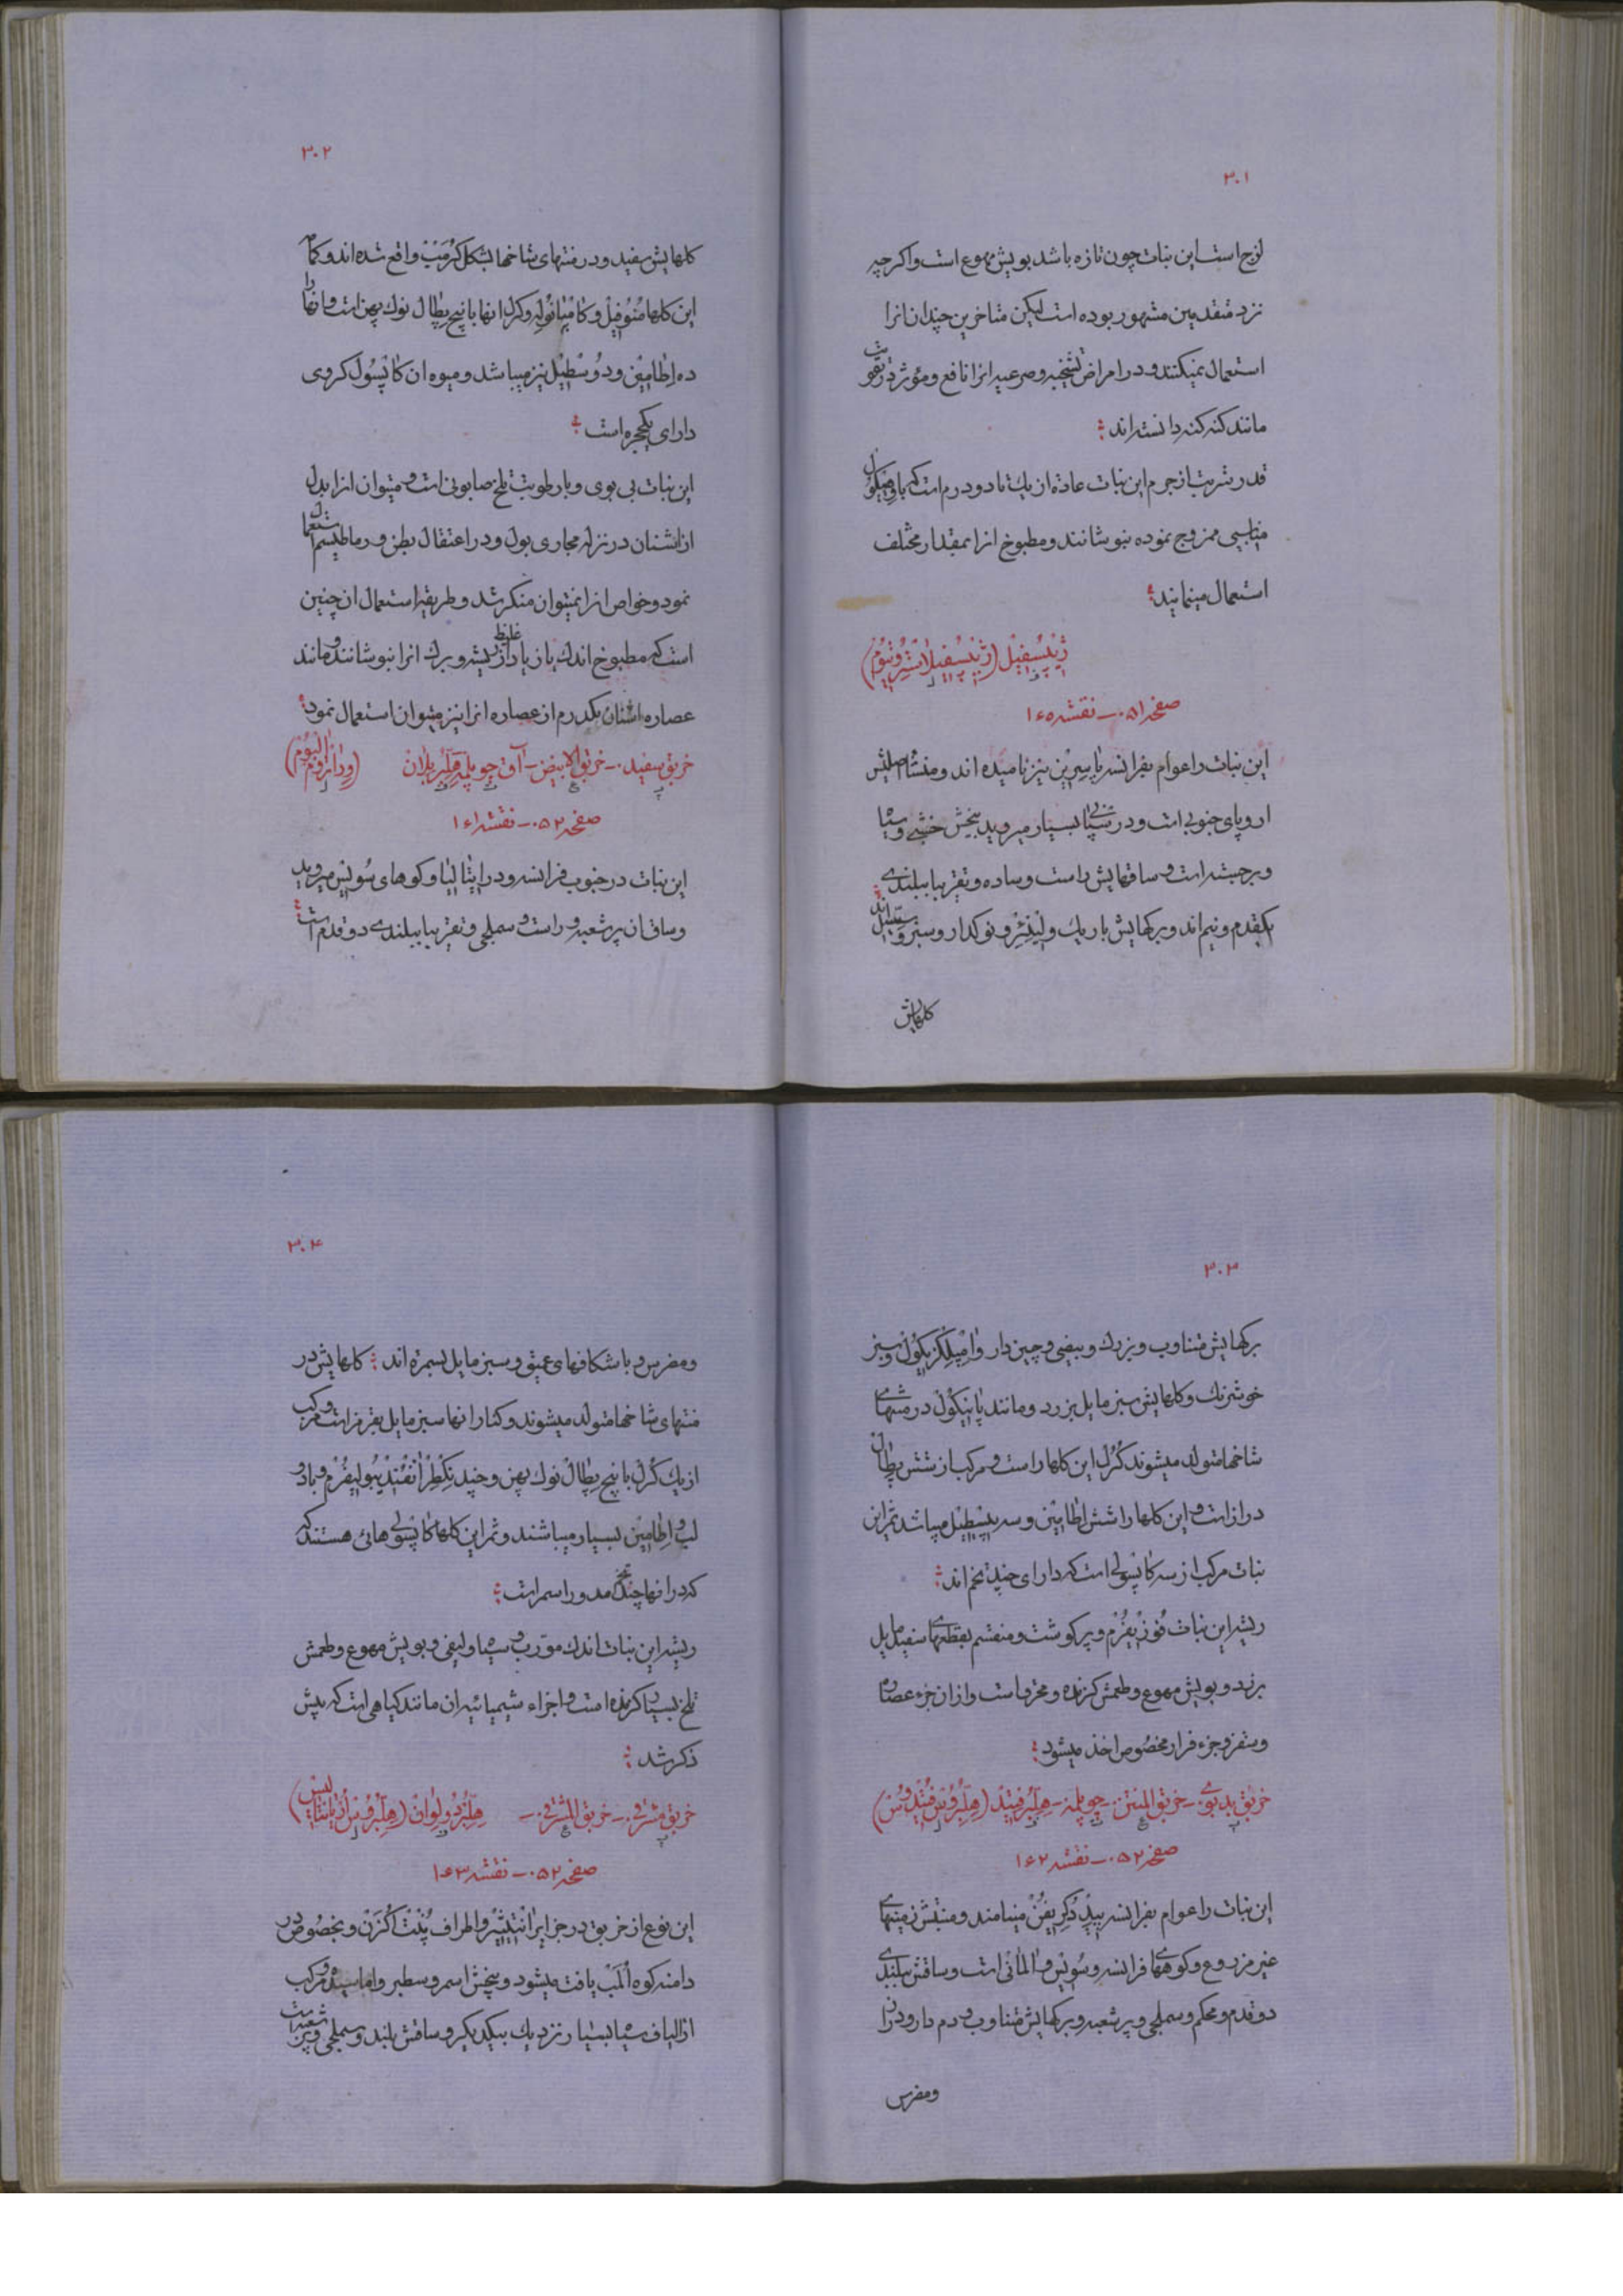 ۳۰۱
لزج است این نبات چون تازه باشد بویش مهوع است واکرچه
نزد متقدمین مشهور بوده است لیکن متاخرین چندان انرا
استعمال نمیکنند و در امراض تشنجیه و صرعیه انرا نافع و مؤثر و در تقویت
مانند کنه کنه دانسته اند
قدر شربت از جرم این نبات عادة از یك تا دو درم است که با وهیکول
مناسبی ممزوج نموده بنوشانند و مطبوخ انرا بمقدار مختلف
استعمال مینمایند
ژیپسفیل (ژیپسفیلا ستروتیوم)
صفحه ۵۱ـ نقشه ۱۶۰
این نبات را عوام بفرانسه نیز نامیده اند و منشأ اصلیش
اروپای جنوبی است و در بسیار میروید بیخش خشبی و سیاه
و برجسته است و ساقهایش راست و ساده و تقریبا ببلندی
یکقدم و نیم اند و برکهایش باریك و لینئر و نوکدار و سبز و سسیل اند
کلهایش
۳۰۲
کلهایش سفید و در منتهای شاخها بشکل کرمنب واقع شده اند و کمام
این کلها منوفیل و کامپانوله و کرل انها با پنج پطال نوك پهن است و انها را
ده اطامین و دو سطیل نیز میباشد و میوه ان کاپسول کروی
دارای یکحجره است
این نبات بی بوی و با رطوبت تلخ صابونی است و میتوان انرا بدل
از اشنان در نزله مجاری بول و در اعتقال بطن و رماطیسم استعمال
نمود و خواص انرا نمیتوان منکر شد و طریقه استعمال ان چنین
است که مطبوخ اندك یا زیاد غلیظ از ریشه و برك انرا بنوشانند و مانند
عصاره اشنان یکدرم از عصاره انرا نیز میتوان استعمال نمود
خربق سفید ـ خربق الابیض ـ آق چوپلمه هلبر بلان (وراتروم البوم)
صفحه ۵۲ـ نقشه ۱۶۱
این نبات در جنوب فرانسه و در ایتالیا و کوهای سویس میروید
و ساق ان پرشعبه و راست و سملجی و تقریبا ببلندی دو قدم است
۳۰۳
برکهایش متناوب و بزرك و بیضی و چین دار وامپلکزیکول و سبز
خوشرنك و کلهایش سبز مایل بزرد و مانند پانیکول در منتهای
شاخها متولد میشوند کرل این کلها راست و مرکب از شش پطال
دراز است و این کلها را شش اطامین و سه پیسطیل میباشد ثمر این
نبات مرکب از سه کاپسولی است که دارای چند تخم اند
ریشه این نبات فوزیفرم و پر کوشت و منقسم بقطعهای سفید مایل
بزرد و بویش مهوع و طعمش کزنده و محرق است و از ان جزء عصاره
و سقز و جزء فرار مخصوص اخذ میشود
خربق بدبوی ـ خربق المنتن ـ چوپلمه ـ هلبر فتید (هلبروس فتیدوس)
صفحه ۵۲ـ نقشه ۱۶۲
این نبات را عوام بفرانسه پیدکریفن مینامند و منبتش زمینهای
غیر مزروع و کوههای فرانسه و سویس و المانی است و ساقش ببلندی
دو قدم و محکم و سملجی و پر شعبه و برکهایش متناوب و دم دار و دراز
و مفرس
۳۰۴
و مفرس و با شکافهای عمیق و سبز مایل بسمره اند کلهایش در
منتهای شاخها متولد میشوند و کنار انها سبز مایل بقرمز است و مرکب
از یك کرل با پنج پطال نوك پهن و چند نکطر انفندیبولیفرم و با دو
لب و اطامین بسیار میباشند و ثمر این کلها کاپسولی هائی هستند که
که در انها چند تخم مدور اسمر است
ریشه این نبات اندك مورب و سیاه و لیفی و بویش مهوع و طعمش
تلخ بسیار کزنده است و اجزاء شیمیائیه ان مانند کیاهی است که پیش
ذکر شد
خربق مشرقی ـ خربق المشرقی ـ هلبر دولوان (هلبروس اریانتالیس)
صفحه ۵۲ـ نقشه ۱۶۳
این نوع از خربق در جزایر انتیثیر و اطراف پنت اکزن و بخصوص در
دامنه کوه المپ یافت میشود و بیخش اسمر و سطبر و اماسیده و مرکب
از الیاف سیاه بسیار نزدیك بیکدیکر و ساقش بلند و سملجی و پر شعبه است